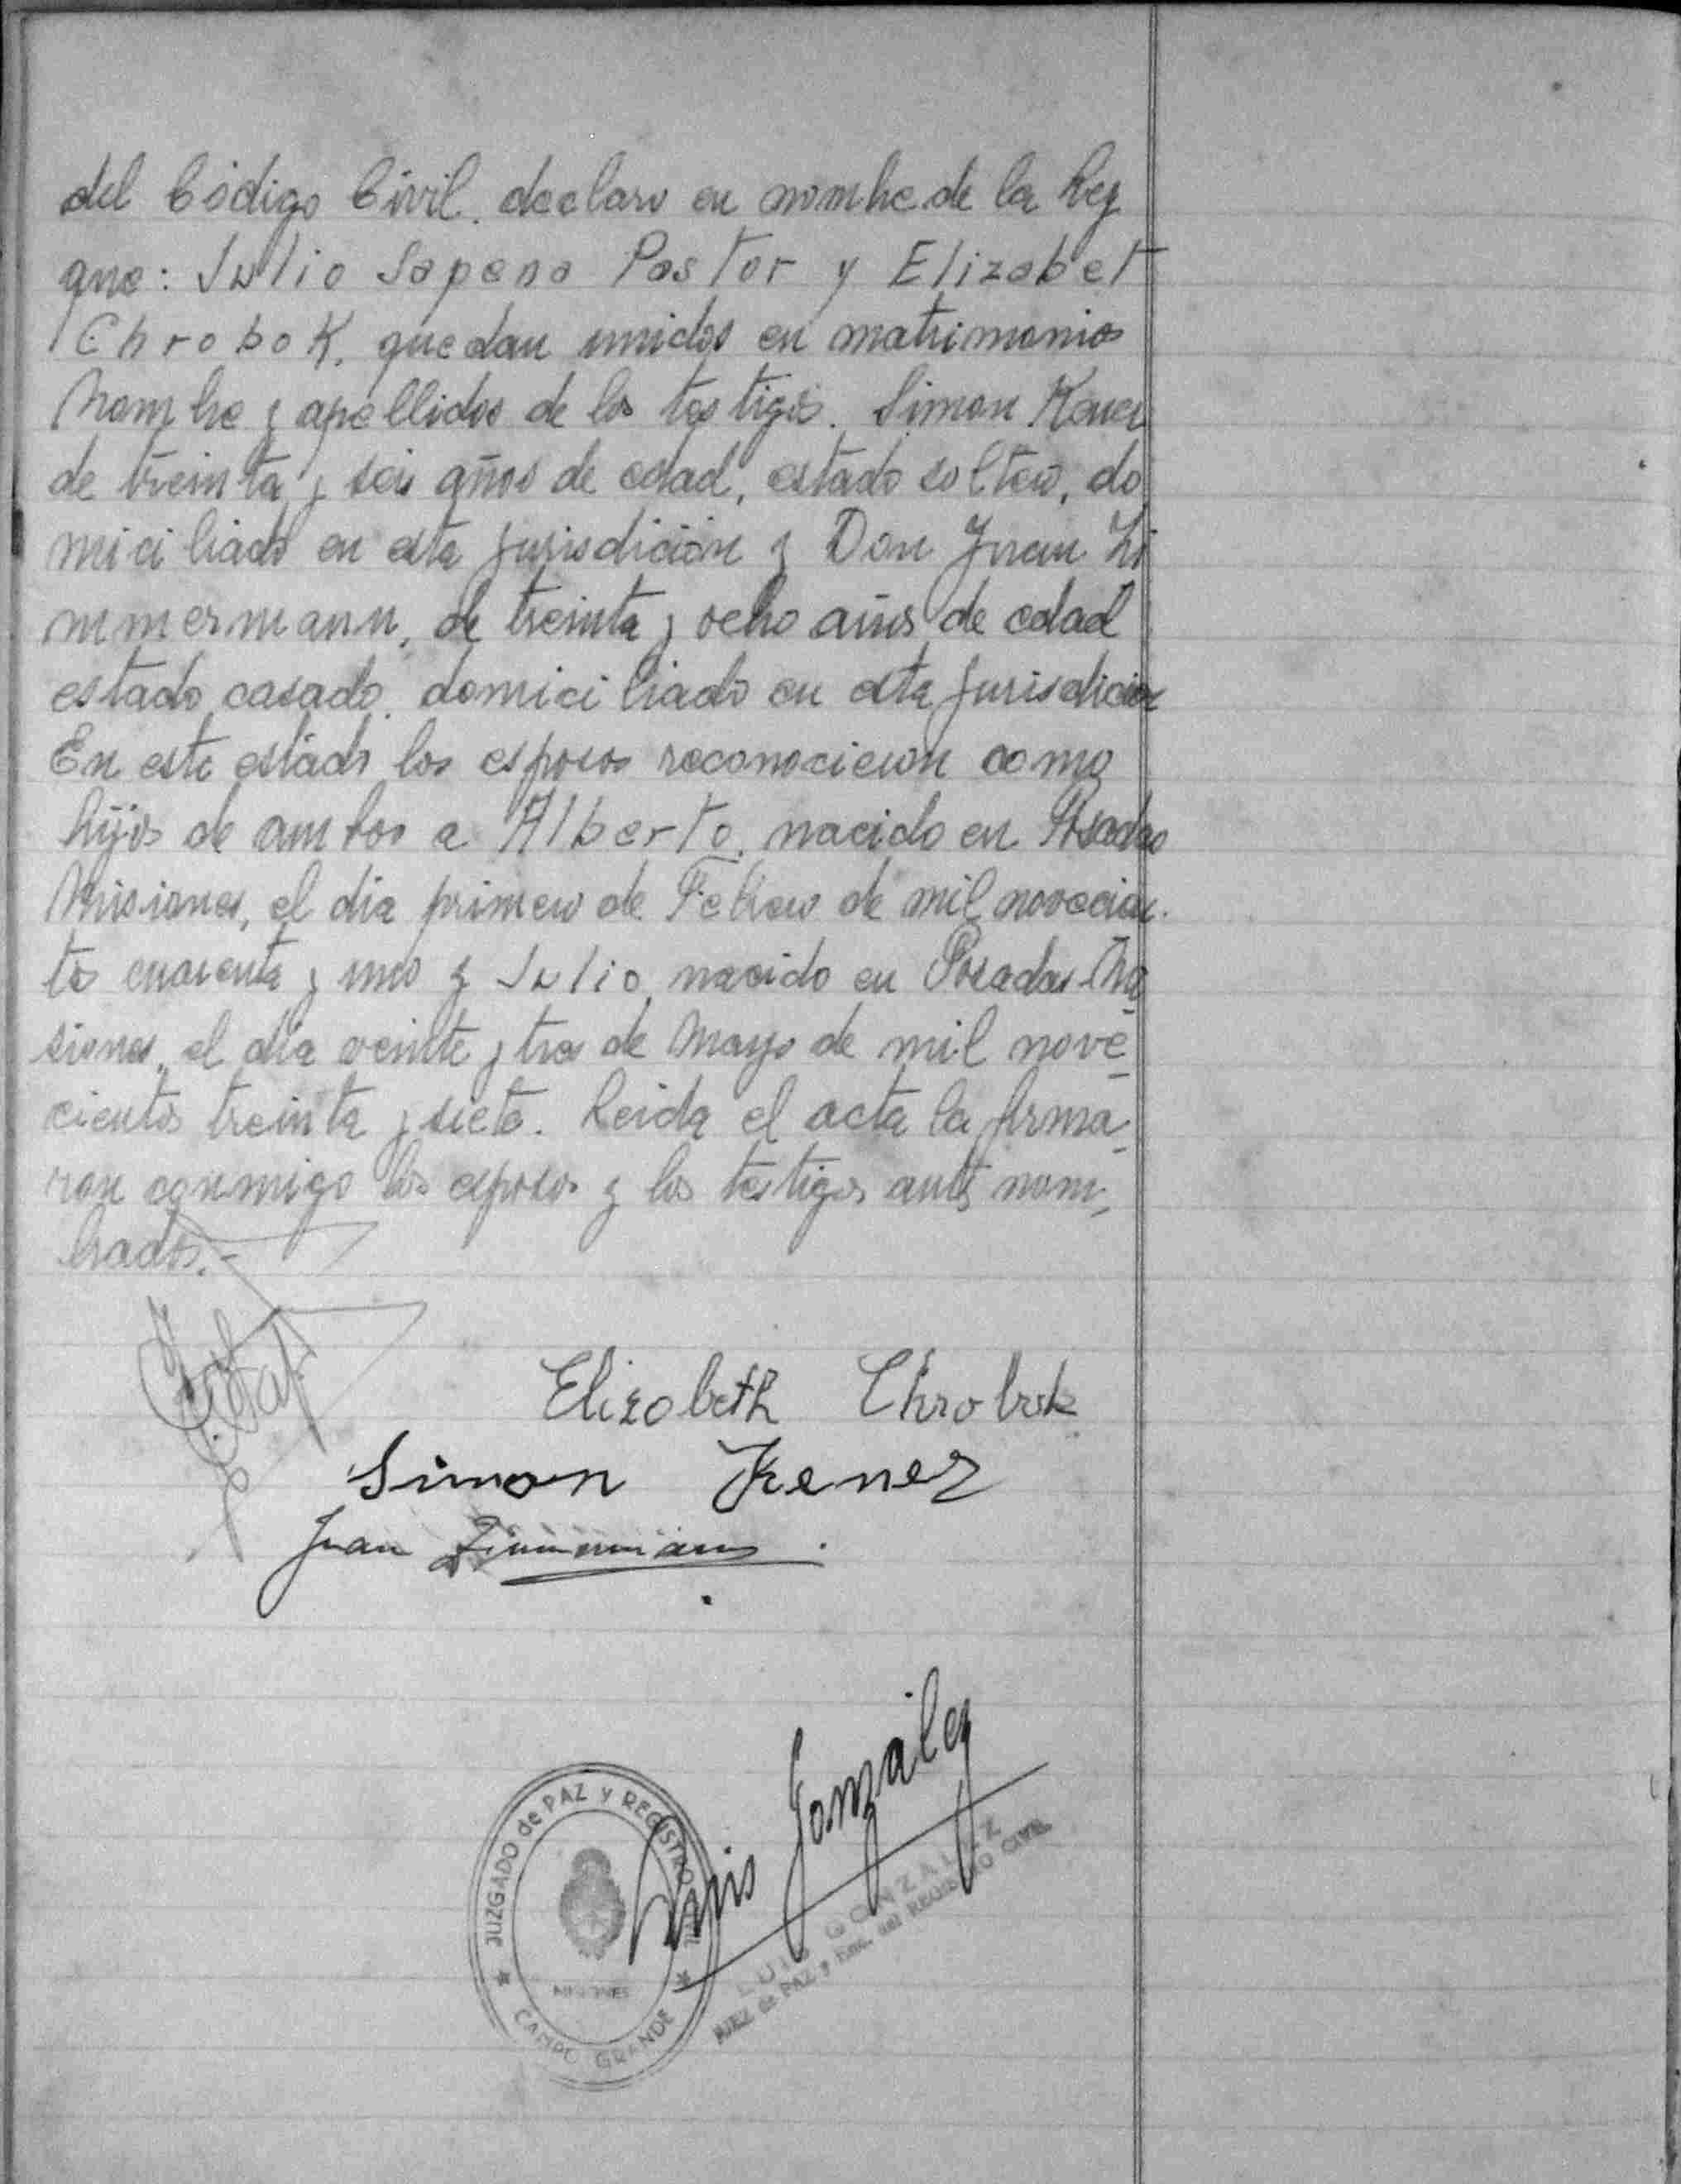 del Código Civil. declaro en nombre de la Ley
que: Julio Sapena Pastor y Elizabet
Chrobok. quedan unidos en matrimonio
Nombre y apellidos de los testigos. Simon Kener
de treinta y seis años de edad, estado soltero, do
miciliado en esta jurisdicion y Don Juan Zi
mmermann, de treinta y ocho años de edad
estado casado. domiciliado en esta jurisdicion
En este estado los esposos reconocieron como
hijos de ambos a Alberto, nacido en Posadas
Misiones, el dia primero de Febrero de mil novecien.
tos cuarenta y uno y Julio, nacido en Posadas Mi
siones, el dia veinte y tres de Mayo de mil nove
cientos treinta y siete. Leida el acta la firma
ron conmigo los esposos y los testigos antes nom
brados.-
Elizabeth Chrobok
Simon Kener
Juan Zimmermann.
Luis Gonzalez
JUZGADO de PAZ Y REGISTRO CIVIL
MISIONES
CAMPO GRANDE
LUIS GONZALEZ
JUEZ de PAZ y Enc. del REGISTRO CIVIL